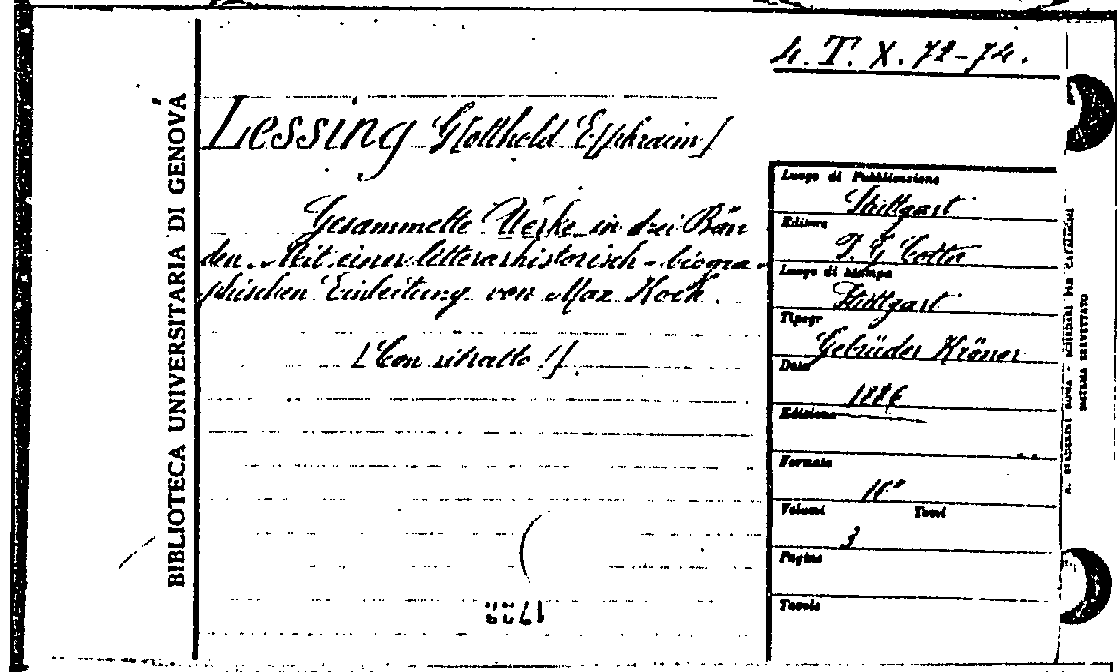 4. T. X. 72-74.
BIBLIOTECA UNIVERSITARIA DI GENOVA
Lessing G[otthold E[phraim]
Gesammelte Werke in drei Bän
den. Mit einer litterarhistorisch-biogra-
phischen Einleitung von Max Koch.
[Con ritratto 1]
Luogo di Pubblicazione
Stuttgart
Editore
J. G. Cotta
Luogo di stampa
Stuttgart
Tipogr
Gebrüder Kröner
Data
1886
Edizione
Formato
16°
Volumi Tomi
3
Pagine
Tavole
SISTEMA BREVETTATO